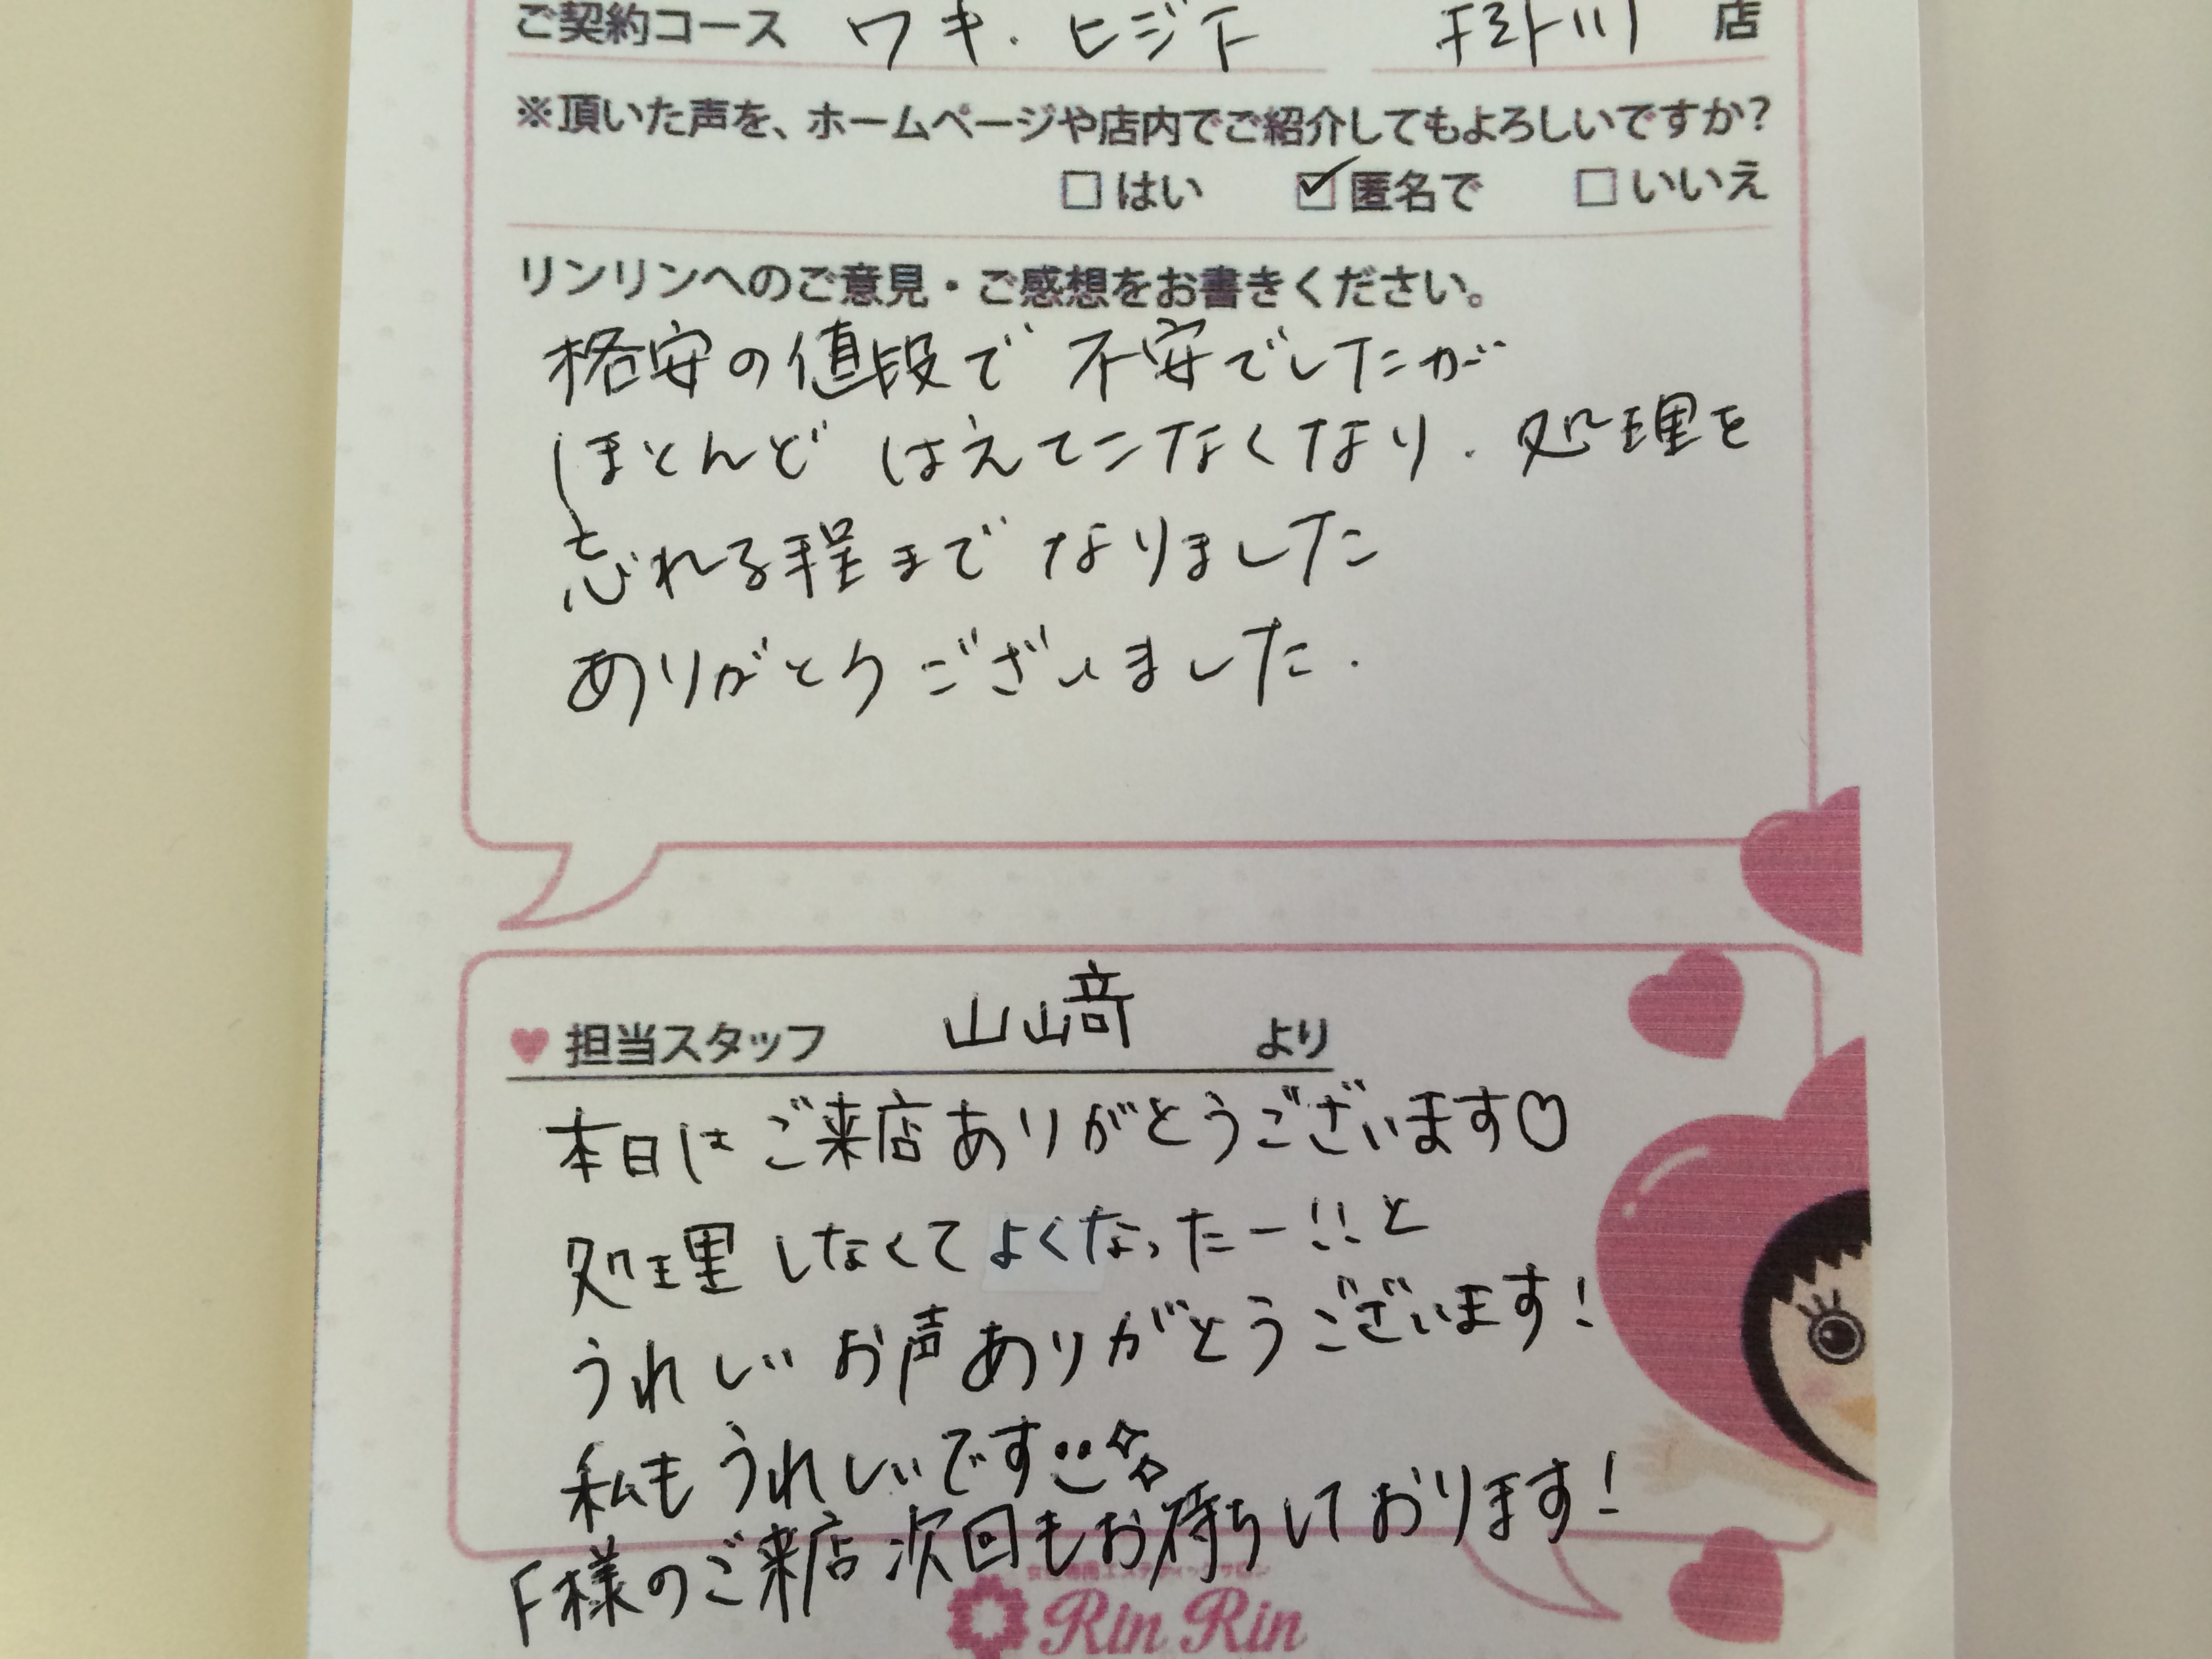 ご契約コース ワキ. ヒジ下 店
※頂いた声を、ホームページや店内でご紹介してもよろしいですか?
はい 匿名で いいえ
リンリンへのご意見・ご感想をお書きください。
格安の値段で 不安でしたが
ほとんど はえてこなくなり. 処理を
忘れる程まで なりました
ありがとうございました.
担当スタッフ 山﨑 より
本日はご来店ありがとうございます♡
処理しなくてよくなったー!!と
うれしいお声ありがとうございます!
私もうれしいです
F様のご来店次回もお待ちしております!
女性専用エステティックサロン
Rin Rin